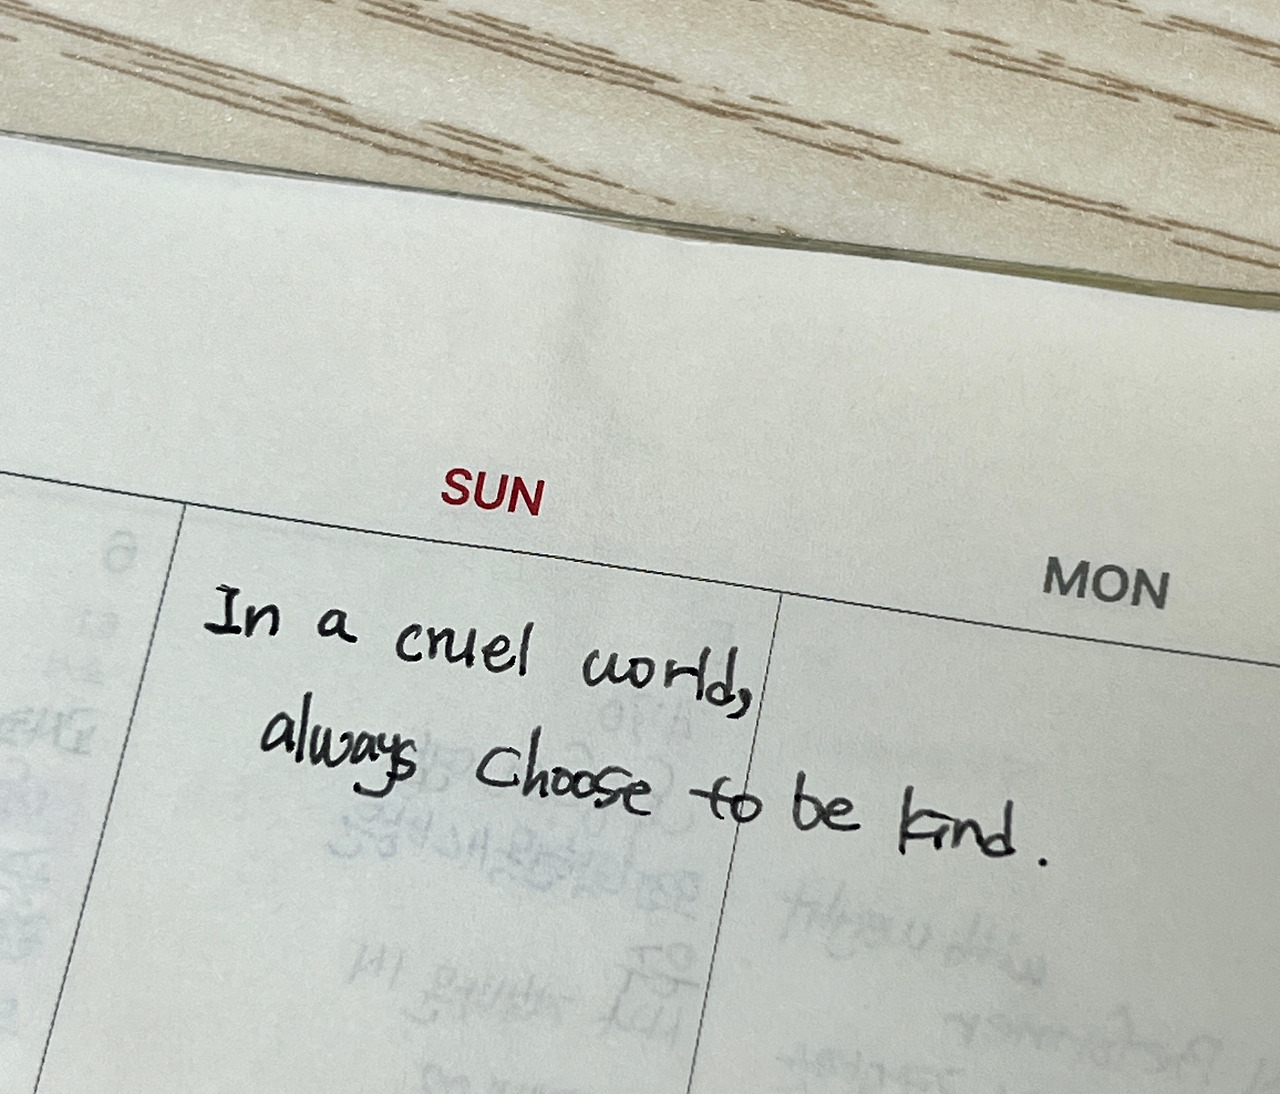 SUN
MON
In a cruel world,
always choose to be kind.